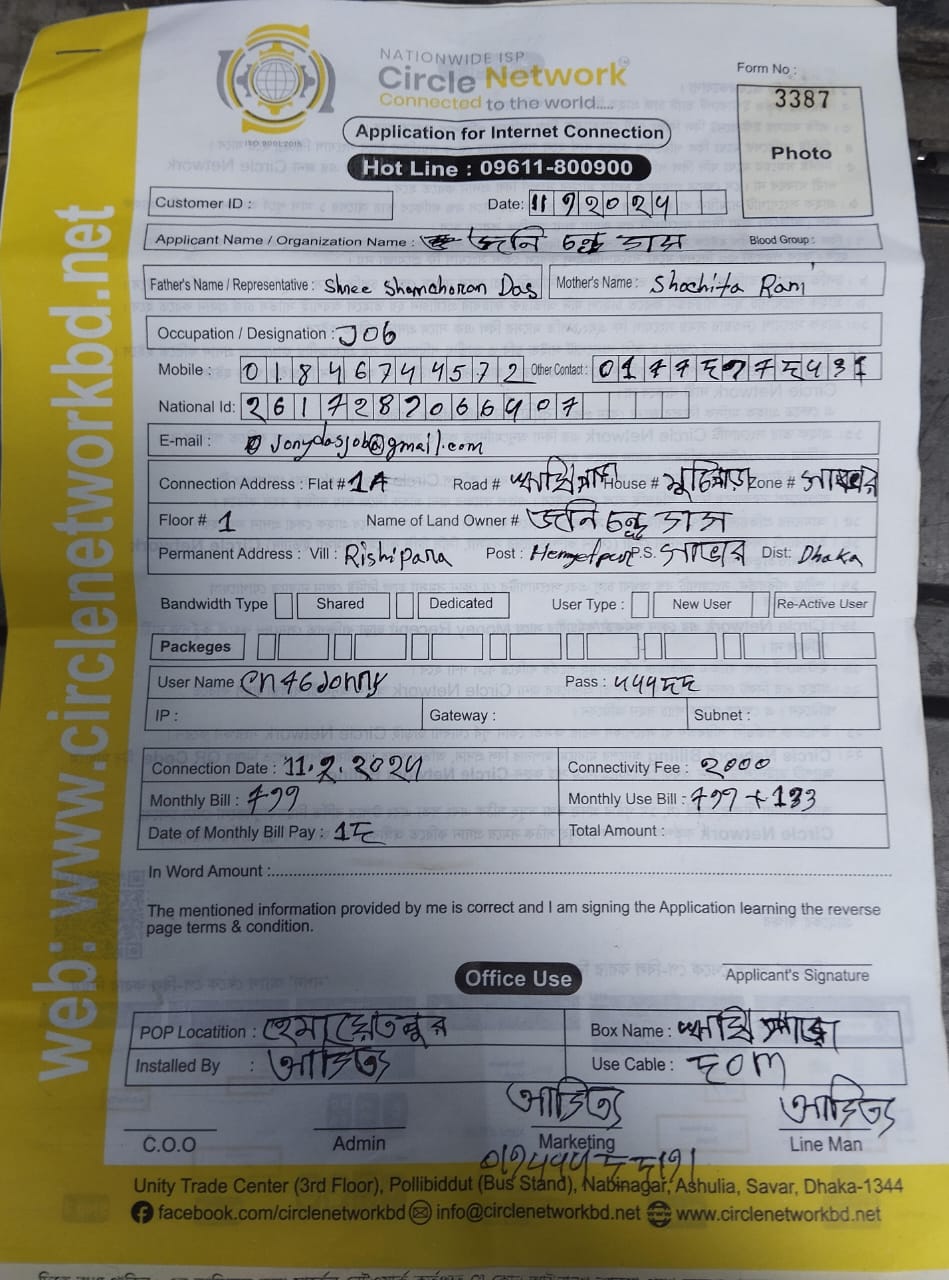 NATIONWIDE ISP
Circle Network
Connected to the world.....
ISO 9001:2015
Form No :
3387
Photo
Application for Internet Connection
Hot Line : 09611-800900
Customer ID : Date:
Applicant Name / Organization Name : জনি চন্দ্র দাস Blood Group :
Father's Name / Representative : Shree Shamcharan Das Mother's Name : Shochita Rani
Occupation / Designation : JOB
Mobile : 01846744572 Other Contact :
National Id:
E-mail : jonydasjob@gmail.com
Connection Address : Flat # 1A Road # ঋষিপাড়া House # Zone # সাভার
Floor # 1 Name of Land Owner # জনি চন্দ্র দাস
Permanent Address : Vill : Rishipara Post : Hemyetpur P.S. সাভার Dist: Dhaka
Bandwidth Type Shared Dedicated User Type : New User Re-Active User
Packeges
User Name Pass :
IP : Gateway : Subnet :
Connection Date : 11.2.2024 Connectivity Fee : 2000
Monthly Bill : 799 Monthly Use Bill : 799 + 133
Date of Monthly Bill Pay : Total Amount :
In Word Amount :
The mentioned information provided by me is correct and I am signing the Application learning the reverse
page terms & condition.
Applicant's Signature
Office Use
POP Locatition : হেমায়েতপুর Box Name : ঋষিপাড়া
Installed By : আদিত্য Use Cable :
আদিত্য আদিত্য
C.O.O Admin Marketing Line Man
Unity Trade Center (3rd Floor), Pollibiddut (Bus Stand), Nabinagar, Ashulia, Savar, Dhaka-1344
facebook.com/circlenetworkbd info@circlenetworkbd.net www.circlenetworkbd.net
web: www.circlenetworkbd.net